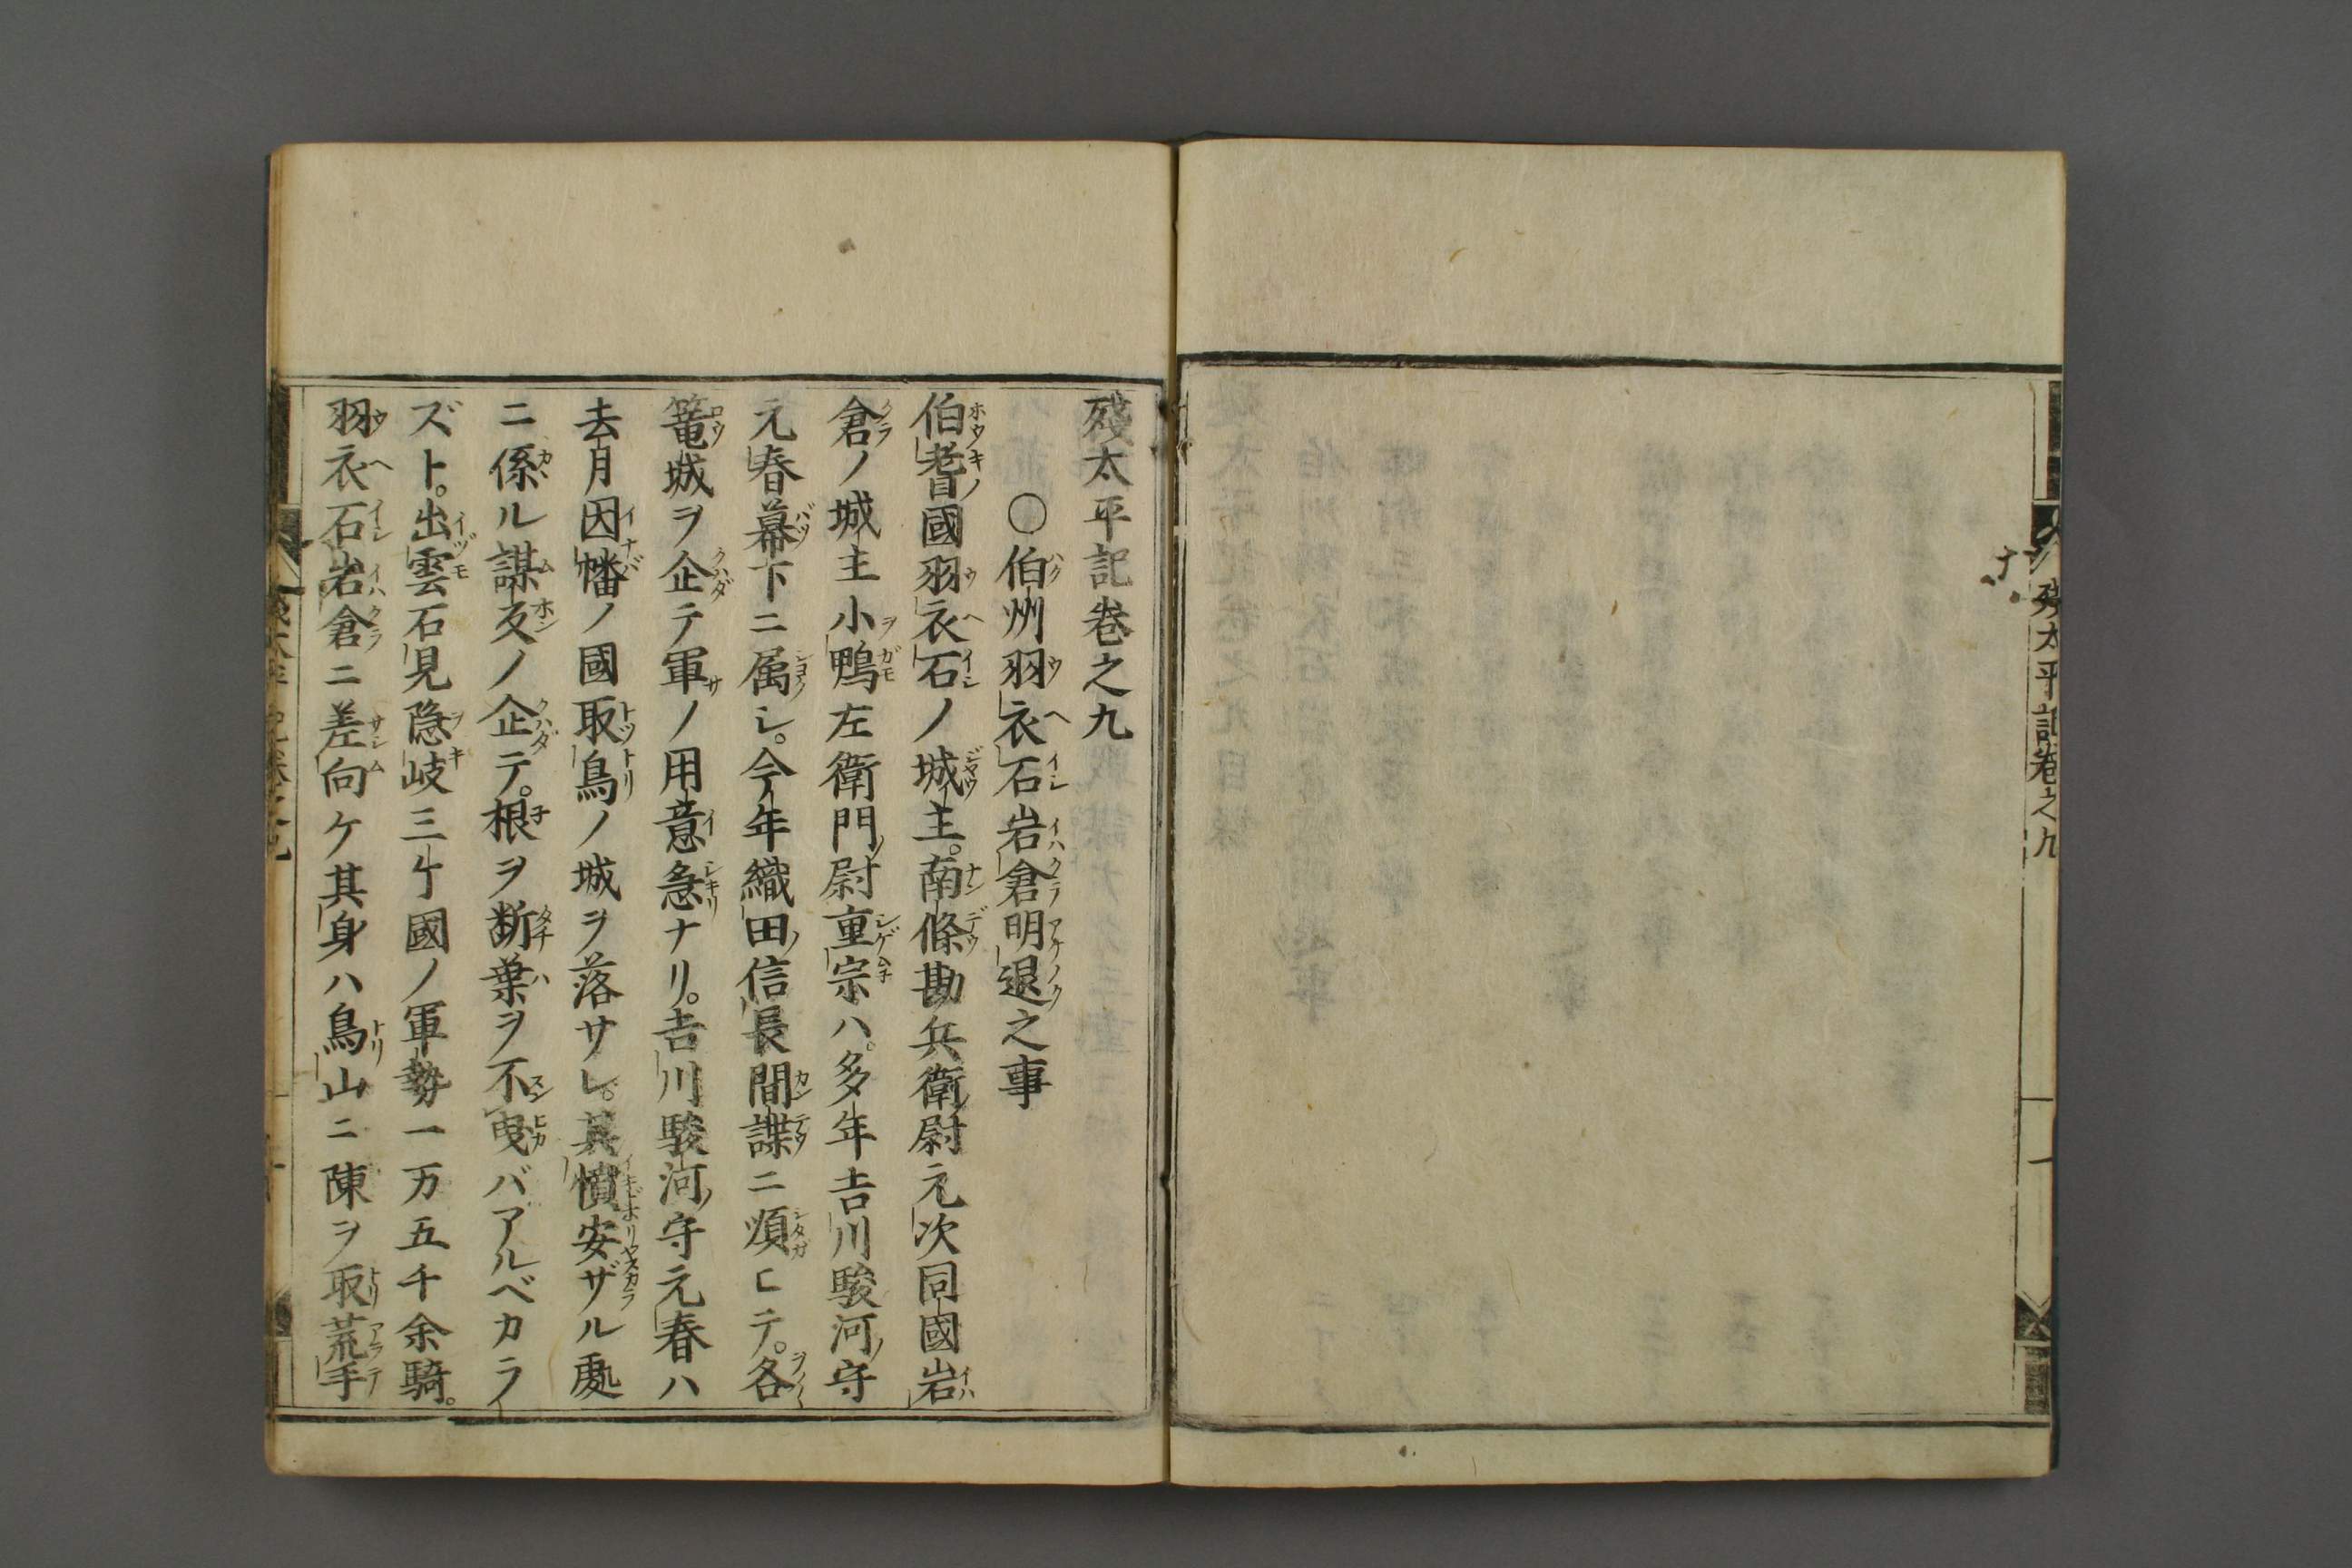 残太平記卷之九
一
残太平記卷之九
○伯州羽衣石岩倉明退之事
伯耆國羽衣石ノ城主。南條勘兵衛尉元次同國岩
倉ノ城主小鴨左衛門尉重宗ハ。多年吉川駿河守
元春幕下ニ属シ。今年織田信長間諜ニ順ヒテ。各
篭城ヲ企テ軍ノ用意急ナリ。吉川駿河守元春ハ
去月因幡ノ國取鳥ノ城ヲ落サレ。其憤安ザル處
ニ係ル謀反ノ企テ。根ヲ断葉ヲ不曳バアルベカラ
ズト。出雲石見隠岐三ケ國ノ軍勢一万五千余騎。
羽衣石岩倉ニ差向ケ其身ハ鳥山ニ陳ヲ取荒手